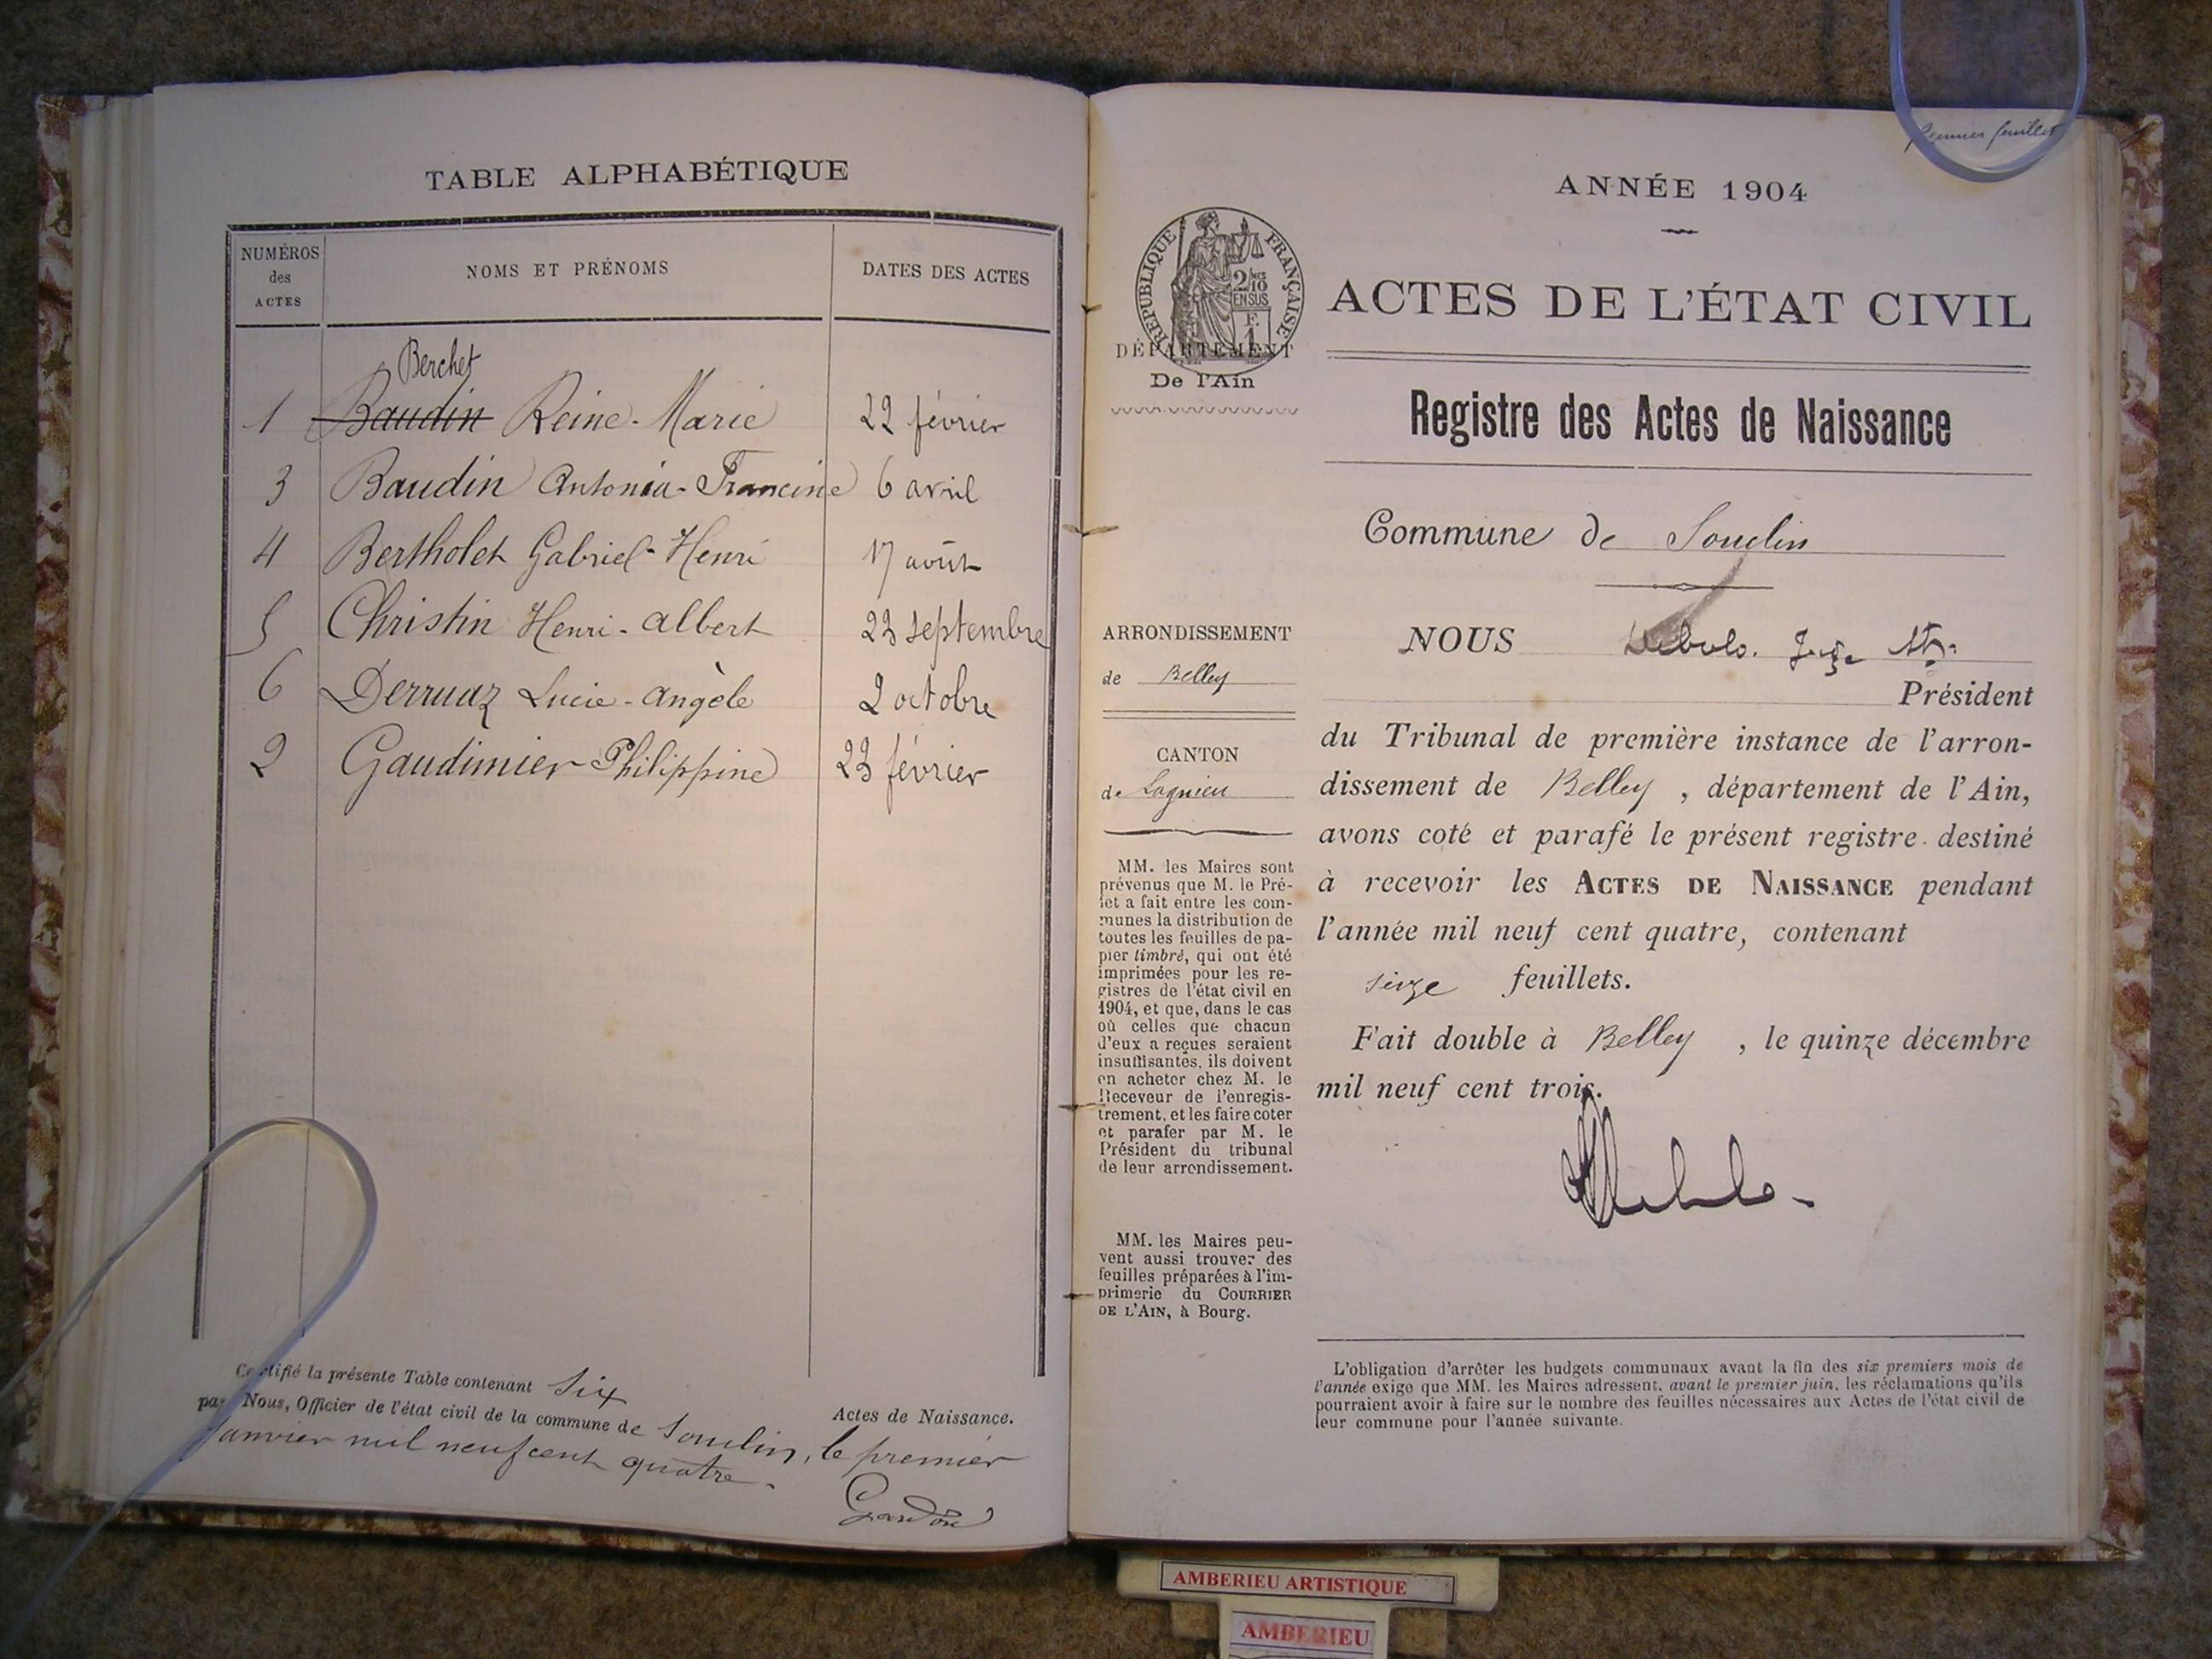 TABLE ALPHABÉTIQUE
NUMÉROS
des
ACTES
NOMS ET PRÉNOMS
DATES DES ACTES
Berchet
1 Baudin Reine-Marie 22 février
3 Baudin Antonia-Francine 6 avril
4 Bertholet Gabriel-Henri 17 août
5 Christin Henri-Albert 23 septembre
6 Derruaz Lucie-Angèle 2 octobre
2 Gaudimier Philippine 23 février
Certifié la présente Table contenant six
Actes de Naissance.
par Nous, Officier de l'état civil de la commune de Souclin, le premier
janvier mil neuf cent quatre.
premier feuillet
ANNÉE 1904
RÉPUBLIQUE FRANÇAISE
2/10
EN SUS
F.
1
DÉPARTEMENT
De l'Ain
ACTES DE L'ÉTAT CIVIL
Registre des Actes de Naissance
Commune de Souclin
ARRONDISSEMENT
de Belley
CANTON
de Lagnieu
MM. les Maires sont
prévenus que M. le Pré-
fet a fait entre les com-
munes la distribution de
toutes les feuilles de pa-
pier timbré, qui ont été
imprimées pour les re-
gistres de l'état civil en
1904, et que, dans le cas
où celles que chacun
d'eux a reçues seraient
insuffisantes, ils doivent
en acheter chez M. le
Receveur de l'enregis-
trement, et les faire coter
et parafer par M. le
Président du tribunal
de leur arrondissement.
MM. les Maires peu-
vent aussi trouver des
feuilles préparées à l'im-
primerie du COURRIER
DE L'AIN, à Bourg.
NOUS
Président
du Tribunal de première instance de l'arron-
dissement de Belley , département de l'Ain,
avons coté et parafé le présent registre destiné
à recevoir les ACTES DE NAISSANCE pendant
l'année mil neuf cent quatre, contenant
seize feuillets.
Fait double à Belley , le quinze décembre
mil neuf cent trois.
L'obligation d'arrêter les budgets communaux avant la fin des six premiers mois de
l'année exige que MM. les Maires adressent, avant le premier juin, les réclamations qu'ils
pourraient avoir à faire sur le nombre des feuilles nécessaires aux Actes de l'état civil de
leur commune pour l'année suivante.
AMBERIEU ARTISTIQUE
AMBERIEU